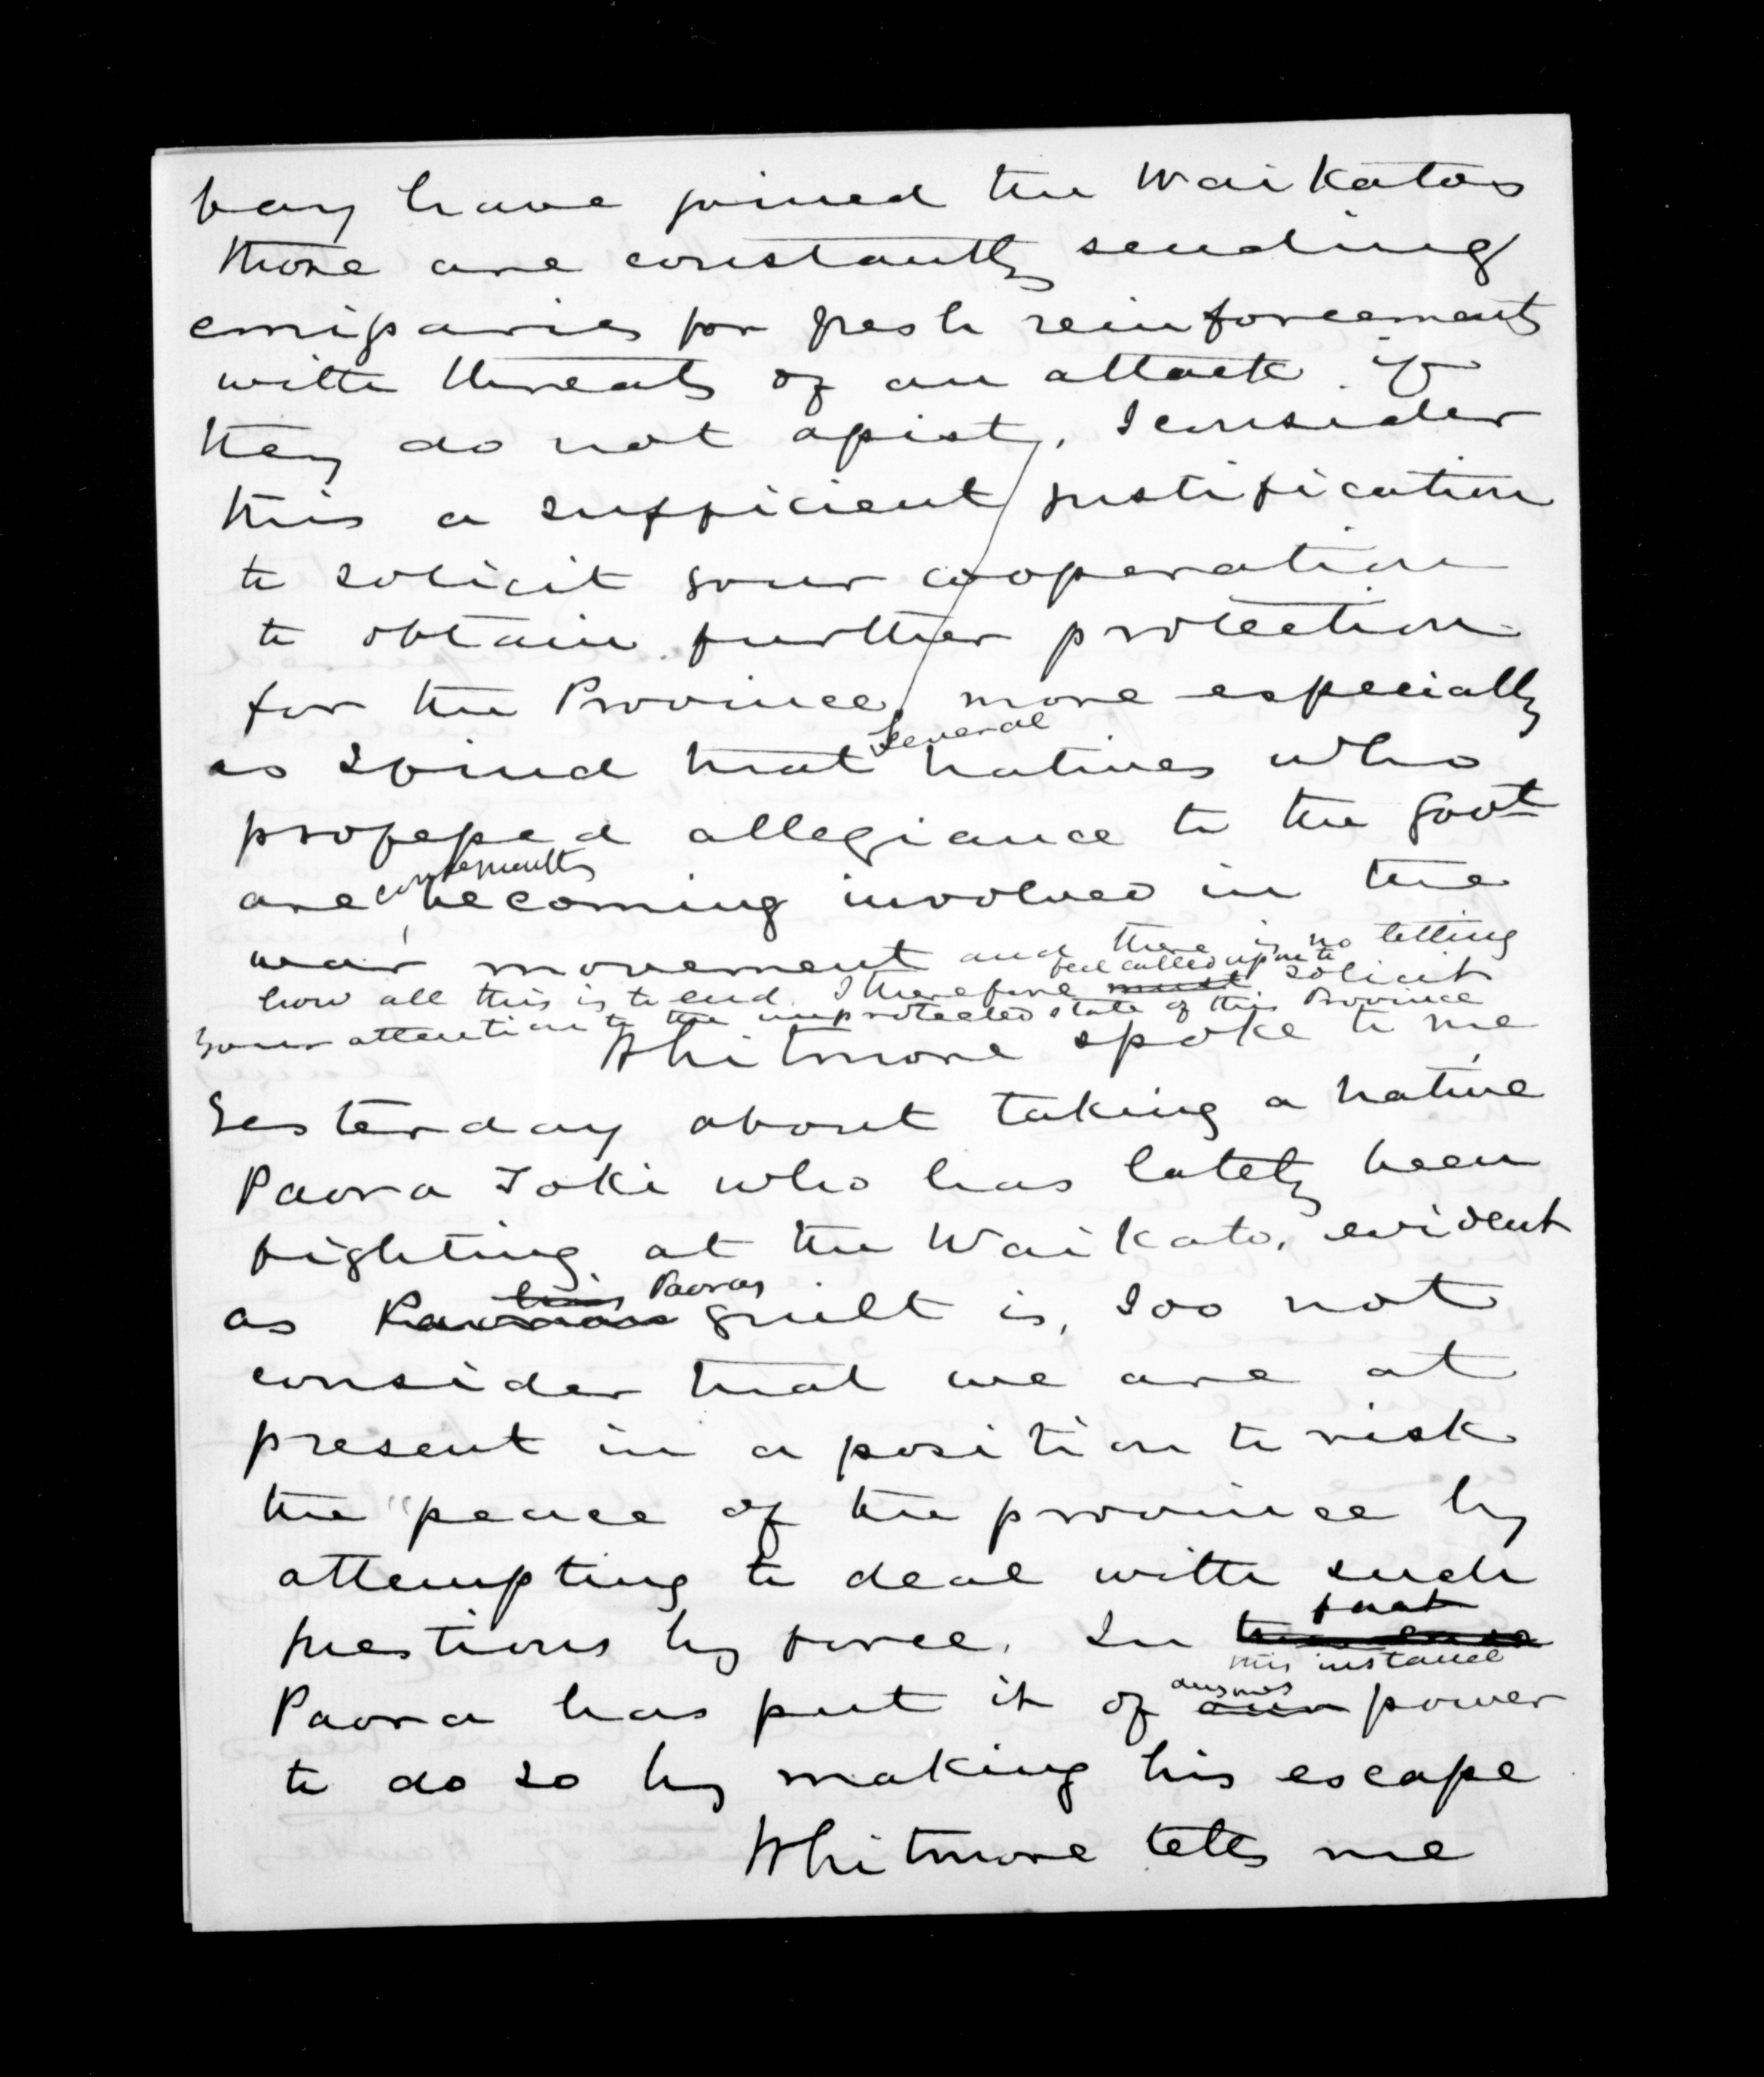 bay have joined the Waikatos
those are constantly sending
emissaries for fresh reinforcements
with threats of an attack if
they do not assist, I consider
this a sufficient justification
to solicit your cooperation
to obtain further protection
for the Province, more especially
several
as I find that natives who
professed allegiance to the Govt
constantly
are becoming involved in the
war movement and there is no telling
feel called upon to
how all this is to end. I therefore must solicit
your attention to the unprotected state of this Province
Whitmore spoke to me
yesterday about taking a native
Paora Toki who has lately been
fighting at the Waikato, evident
his Paoras
as guilt is, I do not
consider that we are at
present in a position to risk
the "peace of the province by
attempting to deal with such
fact
questions by force. In
this instance
Paora has put it of our power
to do so by making his escape
Whitmore tells me